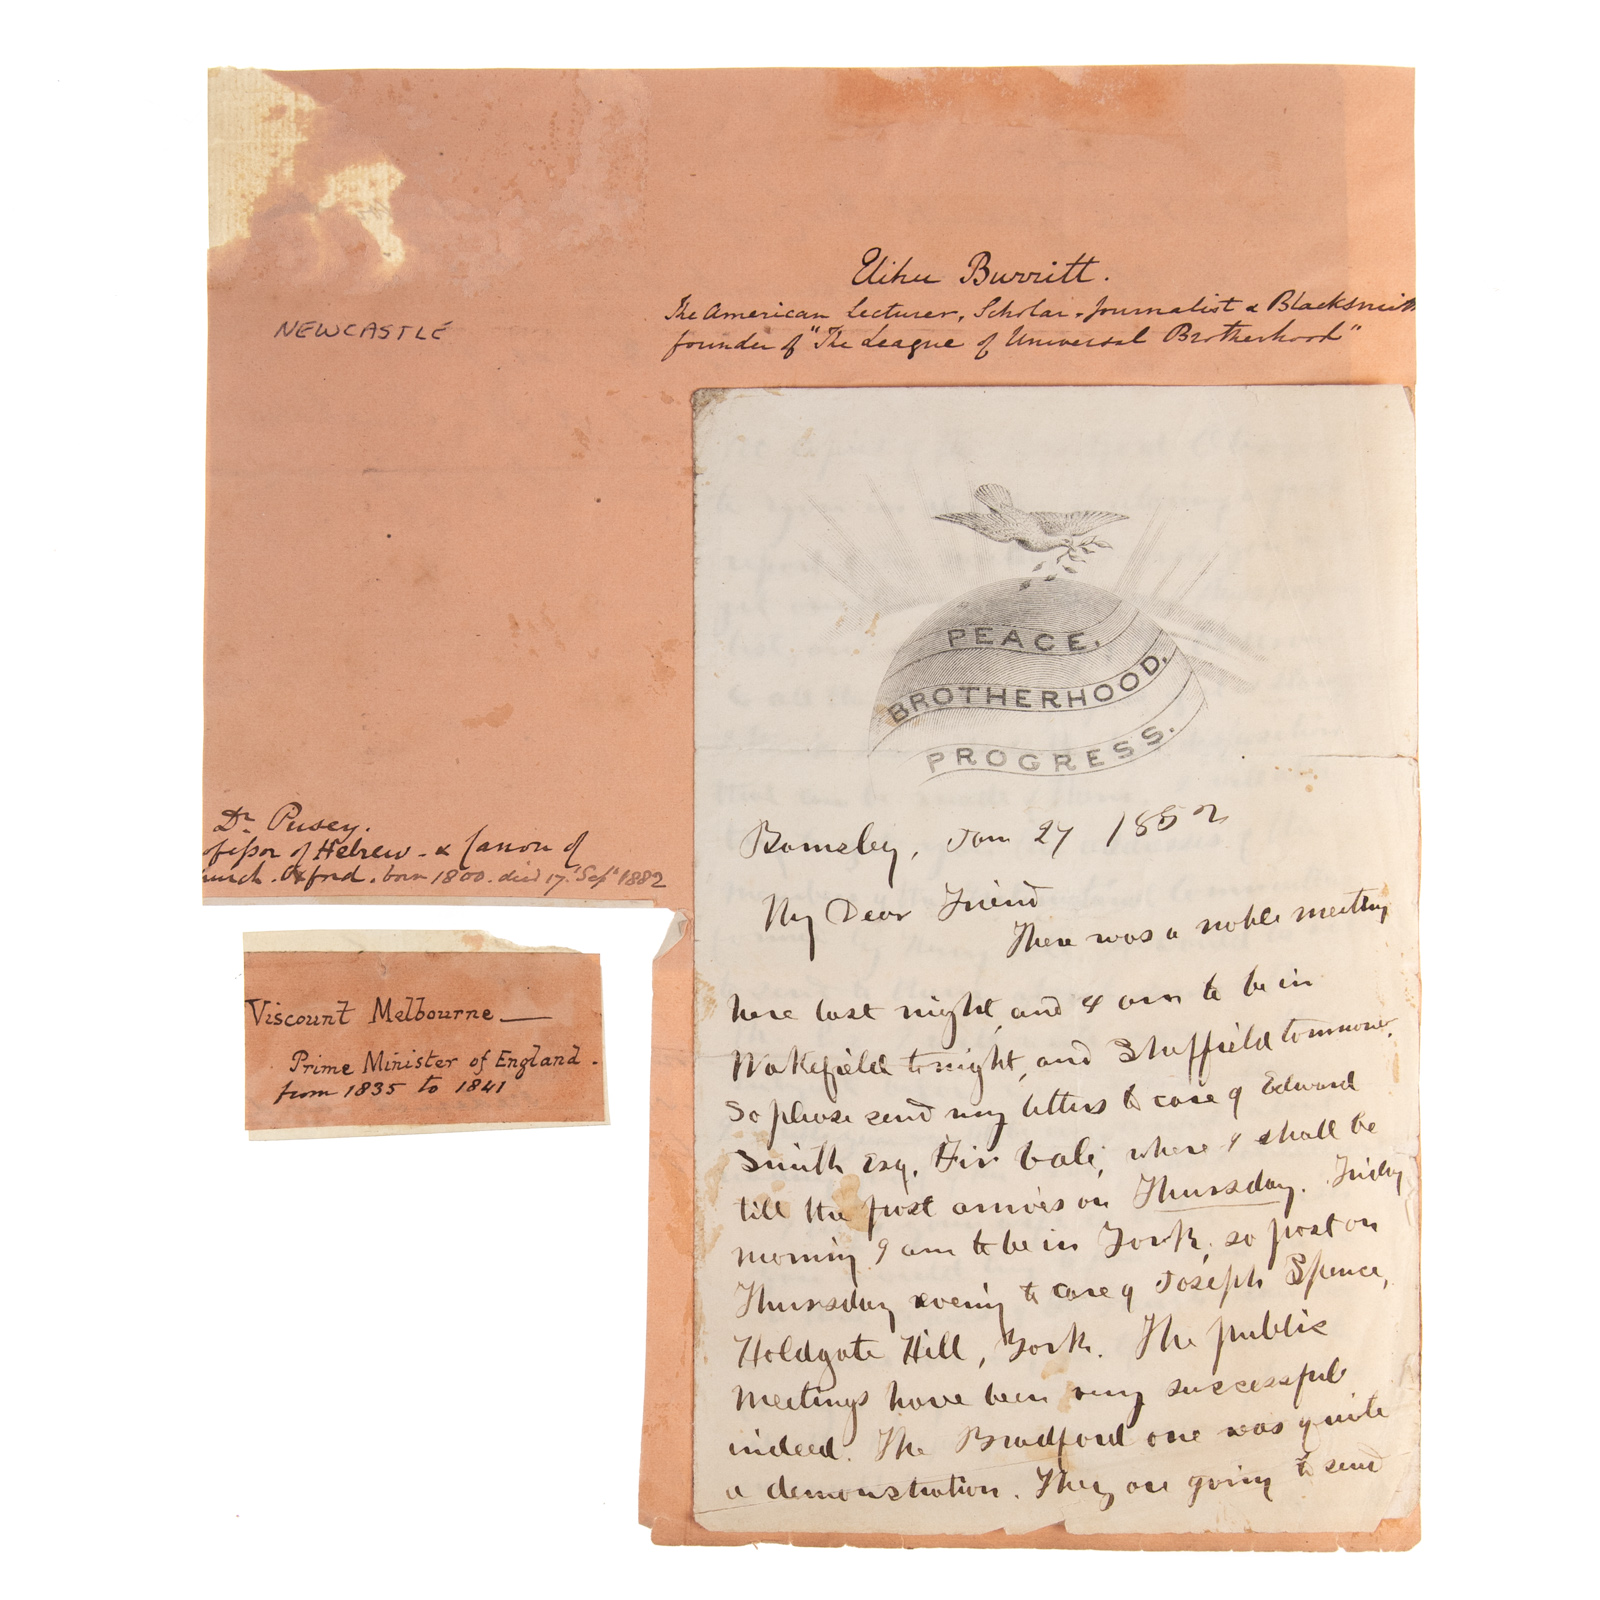 Elihu Burritt.
The American Lecturer, Scholar, Journalist & Blacksmith
founder of "The League of Universal Brotherhood"
NEWCASTLE
PEACE.
BROTHERHOOD.
PROGRESS.
Dr. Pusey.
ofessor of Hebrew - & Canon of
hurch. Oxford. born 1800. died 17. Sept 1882
Viscount Melbourne —
Prime Minister of England.
from 1835 to 1841
Barnsley, Jan 27 1852
My Dear Friend
There was a noble meeting
here last night, and I am to be in
Wakefield to night, and Sheffield tomorrow.
So please send my letters to care of Edward
Smith Esq. Fir Vale, where I shall be
till the post arrives on Thursday. Friday
morning I am to be in York, so post on
Thursday evening to care of Joseph Spence,
Holdgate Hill, York. The public
meetings have been very successful
indeed. The Bradford one was quite
a demonstration. They are going to send